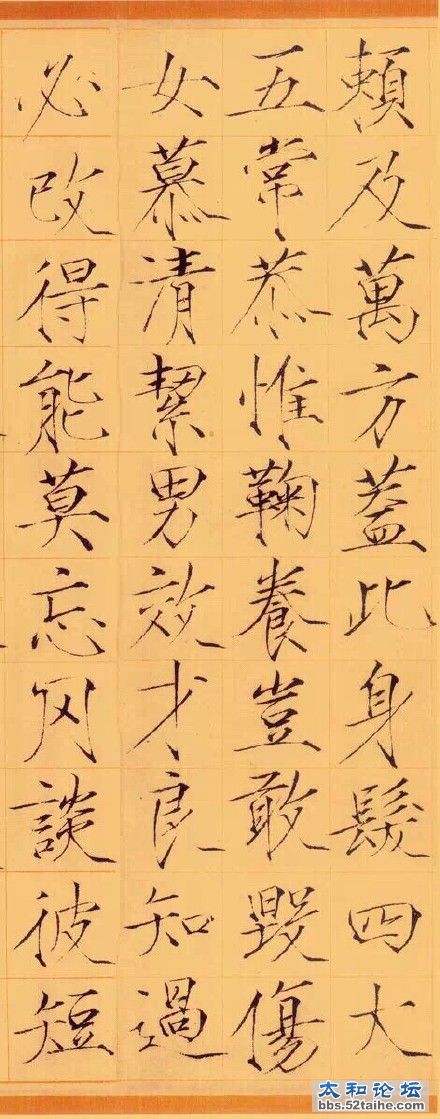 頼及萬方蓋此身髮四大
五常恭惟鞠養豈敢毀傷
女慕清絜男效才良知過
必改得能莫忘罔談彼短
太和论坛
bbs.52taihe.com